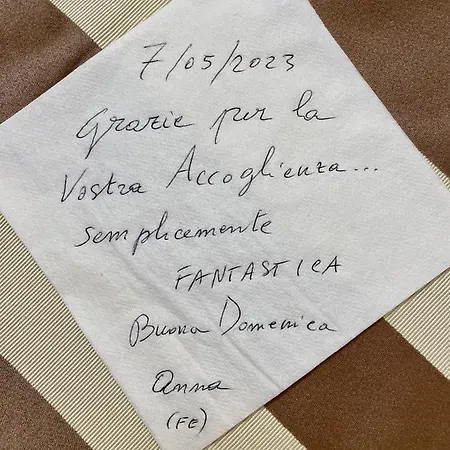 7/05/2023
Grazie per la
Vostra Accoglienza...
semplicemente
FANTASTICA
Buona Domenica
Anna
(FE)